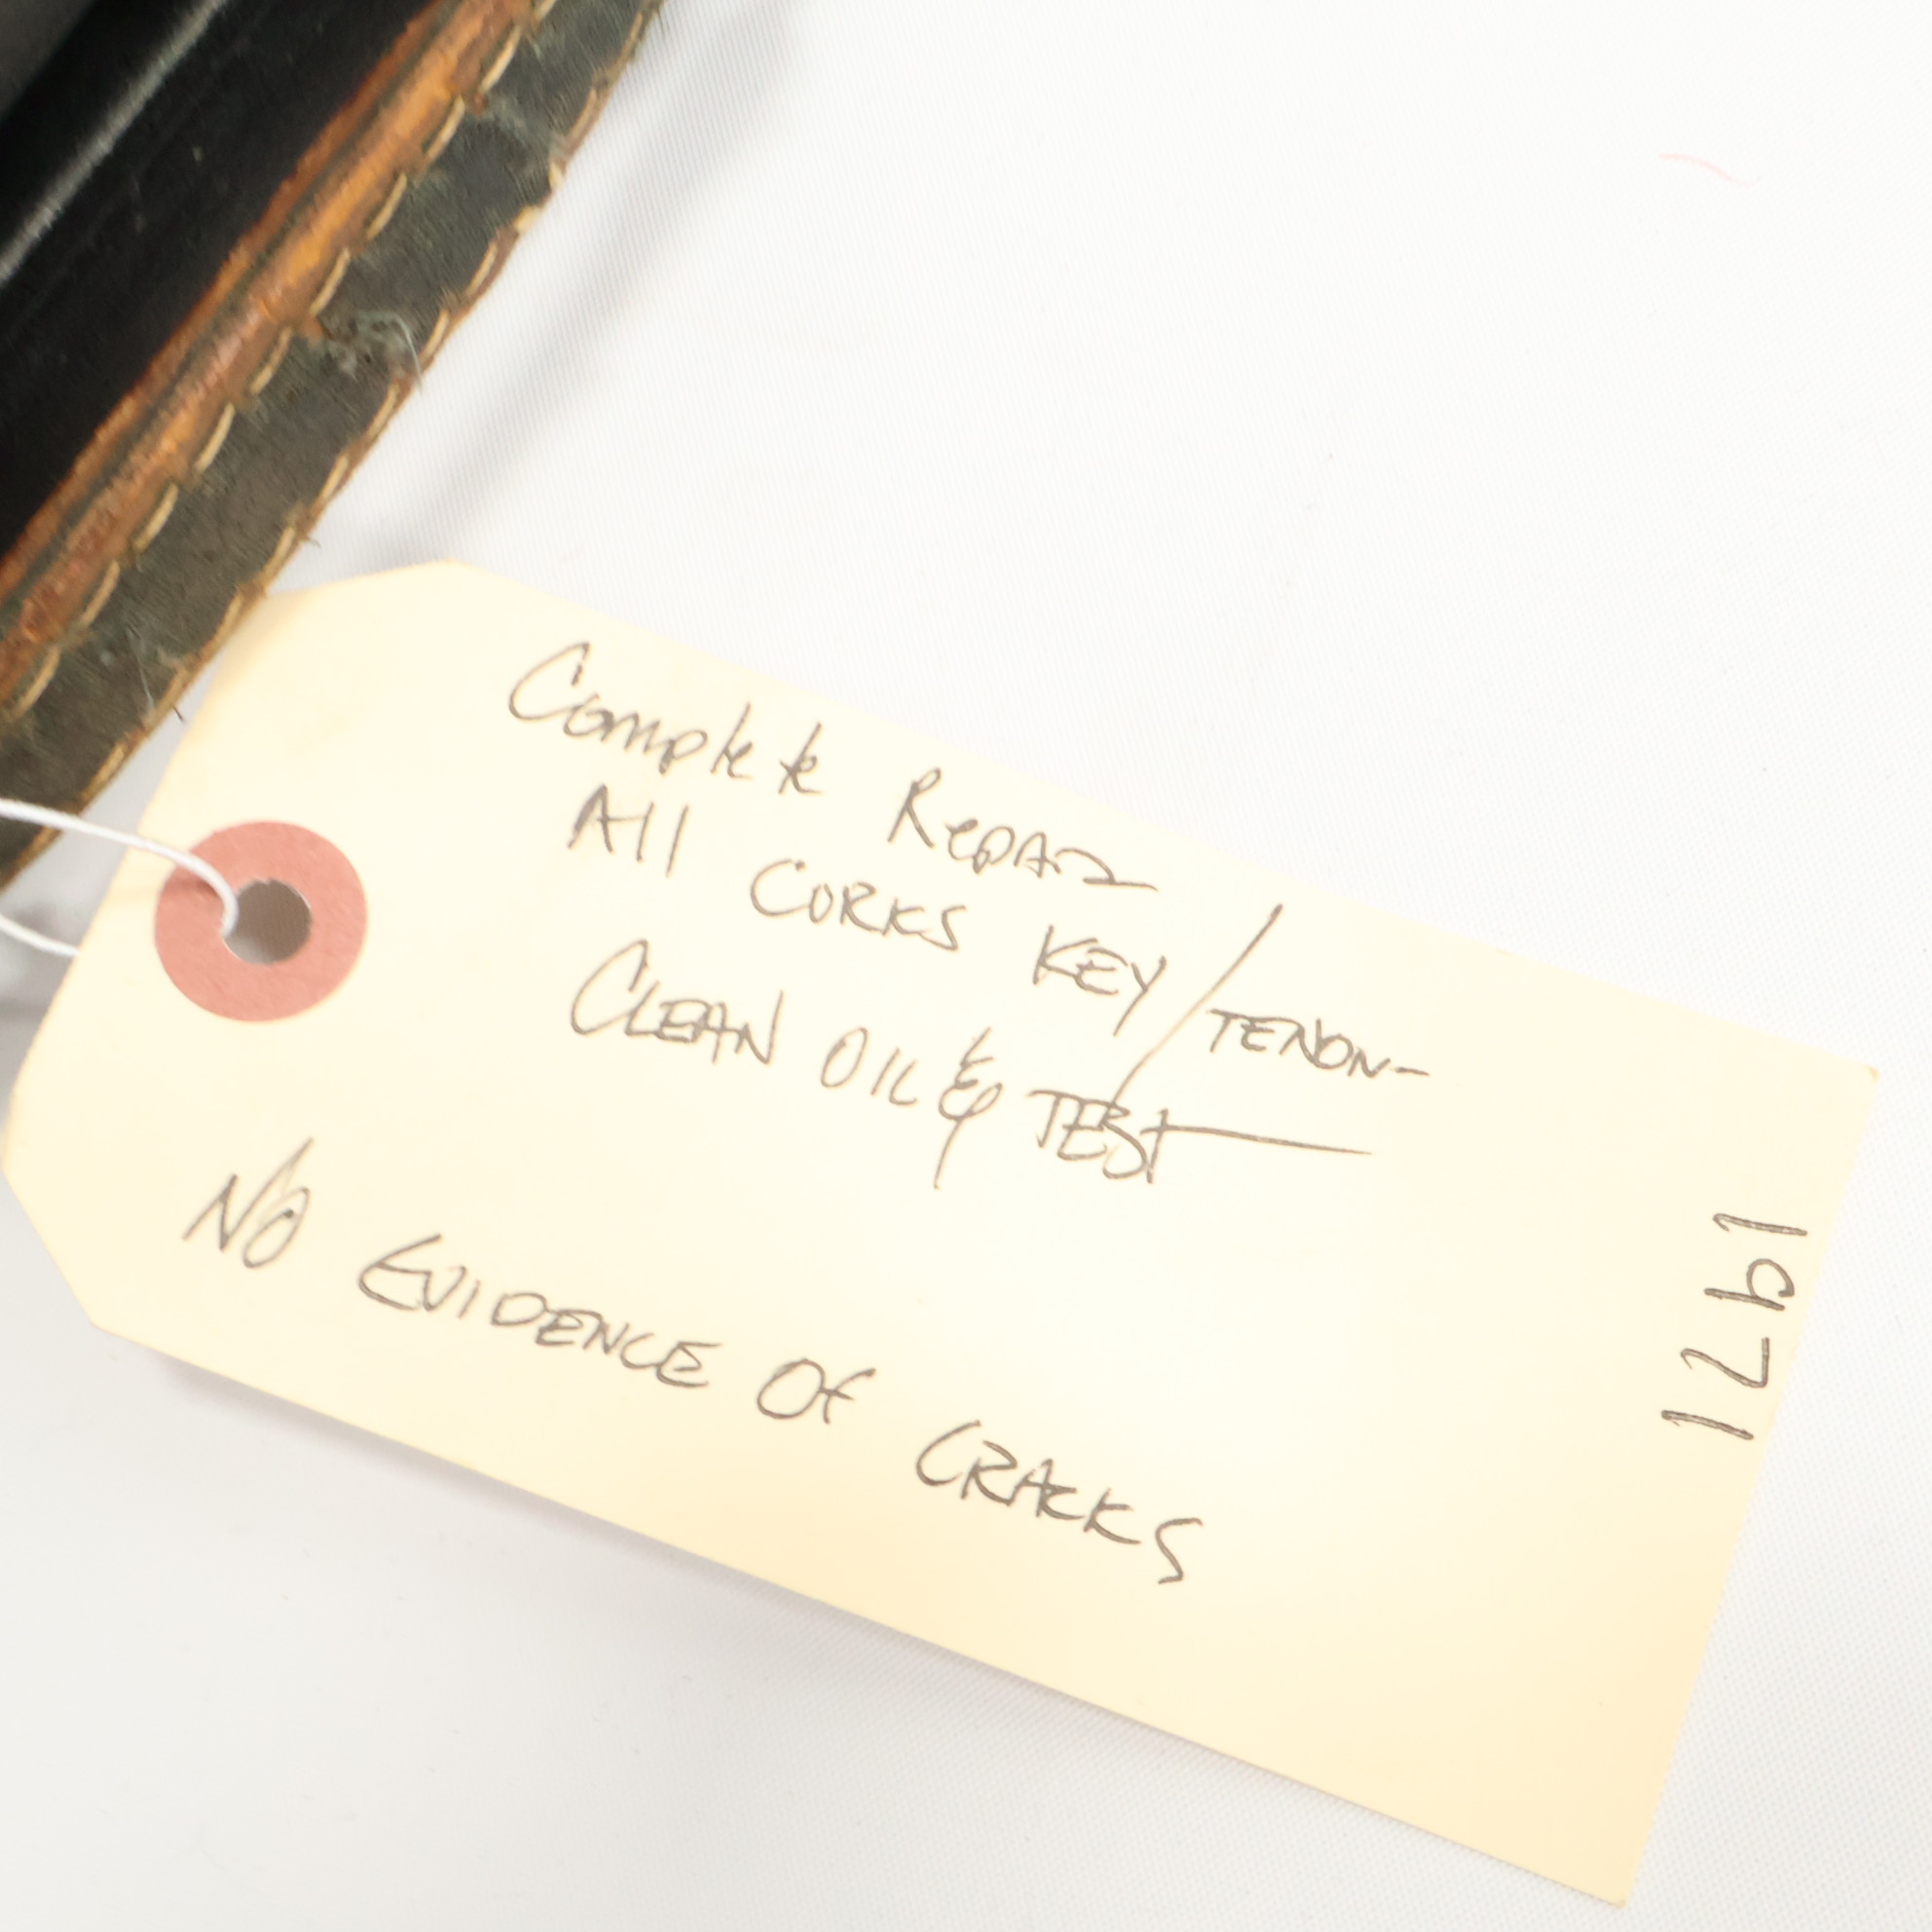 Complete Repair
All CORKS KEY/TENON-
CLEAN OIL & TEST
NO EVIDENCE OF CRACKS